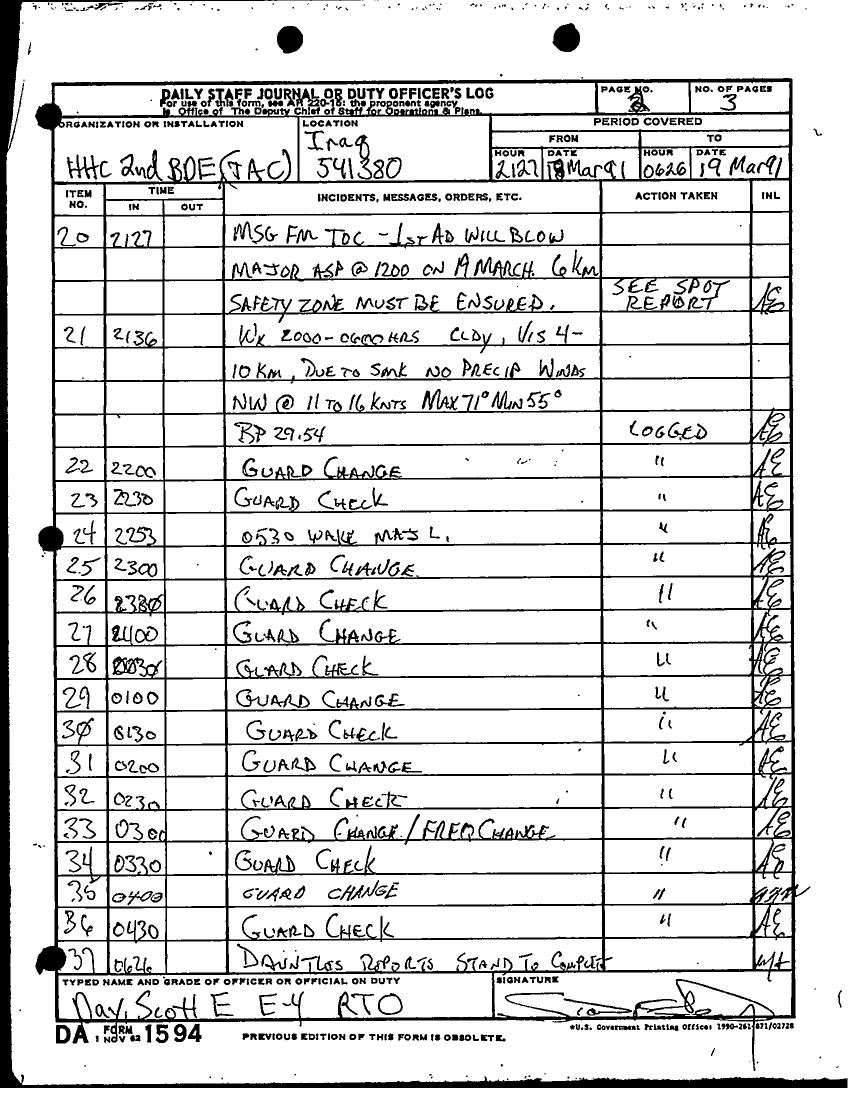 DAILY STAFF JOURNAL OR DUTY OFFICER'S LOG
For use of this form, see AR 220-15; the proponent agency
is Office of The Deputy Chief of Staff for Operations & Plans.
PAGE NO.
2
NO. OF PAGES
3
ORGANIZATION OR INSTALLATION
HHC 2nd BDE (TAC)
LOCATION
Iraq
541380
PERIOD COVERED
FROM
TO
HOUR DATE HOUR DATE
2127 18 Mar 91 0626 19 Mar 91
ITEM NO. TIME IN OUT INCIDENTS, MESSAGES, ORDERS, ETC. ACTION TAKEN INL
20 2127 MSG FM TOC - 1st AD WILL BLOW
MAJOR ASP @ 1200 ON 19 MARCH. 6 Km
SAFETY ZONE MUST BE ENSURED. SEE SPOT REPORT AE
21 2136 WX 2000-0600 HRS CLDY, VIS 4-
10 KM, DUE TO SMK NO PRECIP WINDS
NW @ 11 TO 16 KNTS MAX 71° MIN 55°
BP 29.54 LOGGED AE
22 2200 GUARD CHANGE " AE
23 2230 GUARD CHECK " AE
24 2253 0530 WAKE MAJ L. " AE
25 2300 GUARD CHANGE " AE
26 2330 GUARD CHECK " AE
27 2400 GUARD CHANGE " AE
28 0030 GUARD CHECK " AE
29 0100 GUARD CHANGE " AE
30 0130 GUARD CHECK " AE
31 0200 GUARD CHANGE " AE
32 0230 GUARD CHECK " AE
33 0300 GUARD CHANGE / FREQ CHANGE " AE
34 0330 GUARD CHECK " AE
35 0400 GUARD CHANGE "
36 0430 GUARD CHECK " AE
37 0626 DAUNTLES REPORTS STAND TO COMPLETE
TYPED NAME AND GRADE OF OFFICER OR OFFICIAL ON DUTY
Day, Scott E E-4 RTO
SIGNATURE
DA FORM 1 NOV 62 1594
PREVIOUS EDITION OF THIS FORM IS OBSOLETE.
*U.S. Government Printing Office: 1990-261-871/02728